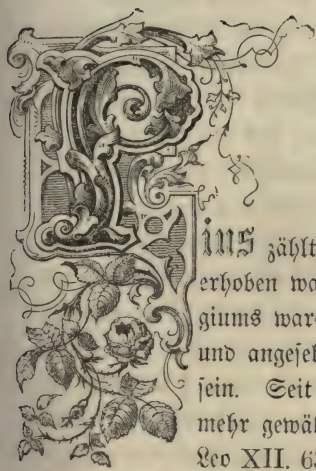 Pius zählt
erhoben wo
giums war
und angeseh
sein. Seit
mehr gewäh
Leo XII. 6